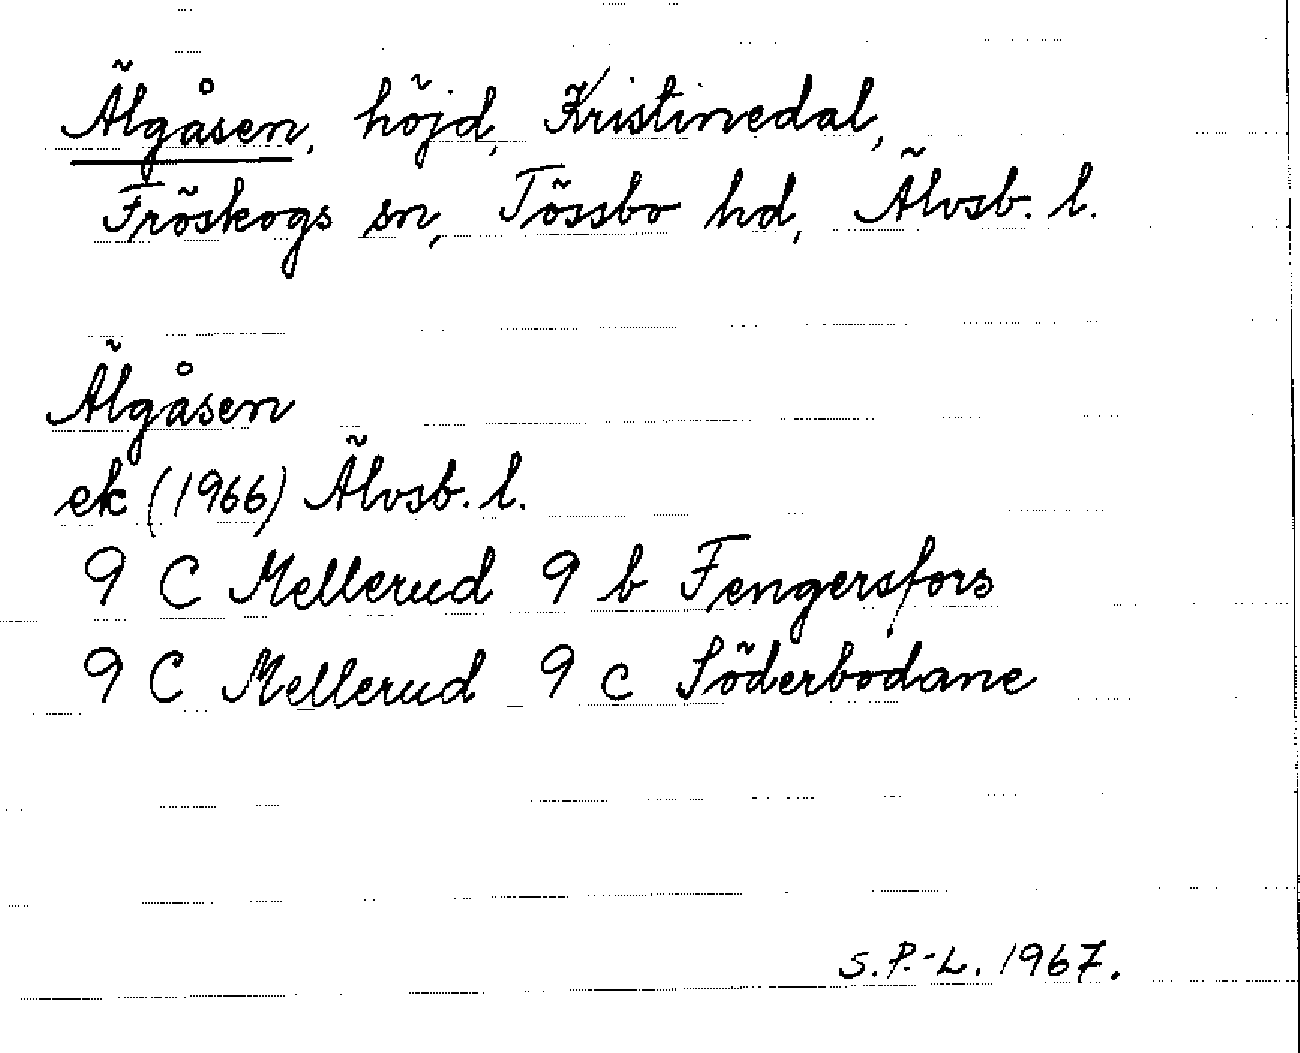 Älgåsen, höjd, Kristinedal,
Fröskogs sn, Tössbo hd, Älvsb. l.
Älgåsen
ek (1966) Älvsb. l.
9 C Mellerud 9 b Fengersfors
9 C Mellerud 9 c Söderbodane
S.P.-L. 1967.